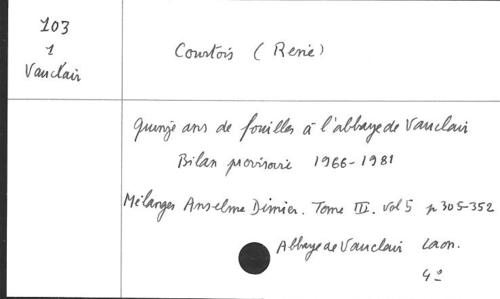 103
1
Vauclair
Courtois (René)
Quinze ans de fouilles à l'abbaye de Vauclair
Bilan provisoire 1966-1981
Mélanges Anselme Dimier. Tome III. vol 5 p 305-352
Abbaye de Vauclair Laon.
4°